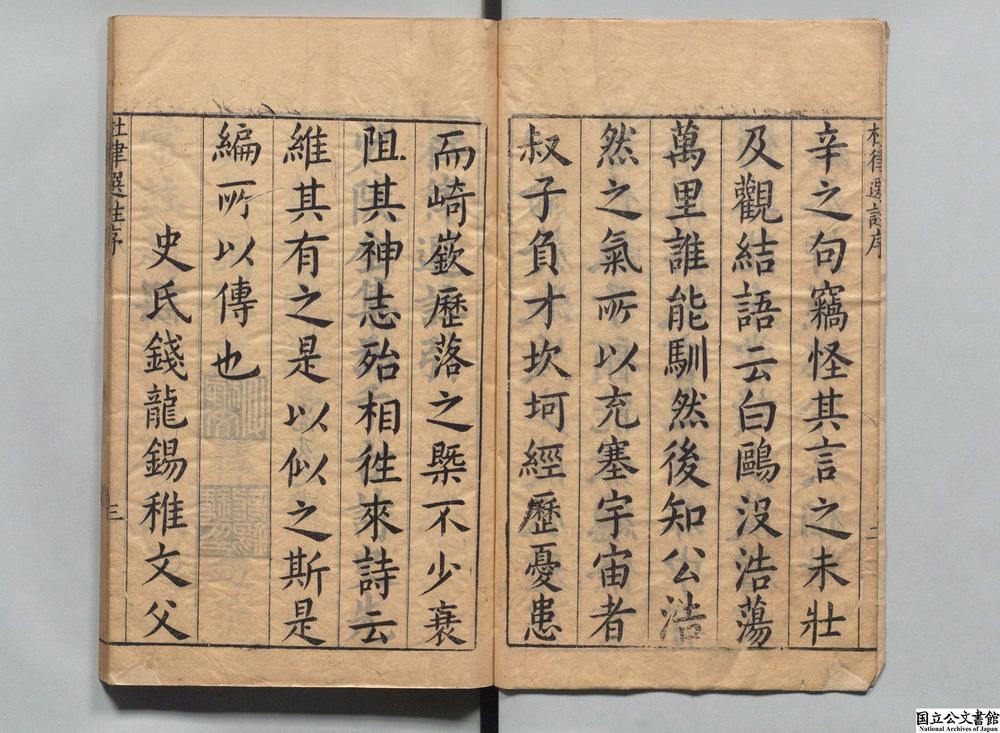 杜律選註序
二
辛之句竊怪其言之未壯
及觀結語云白鷗没浩蕩
萬里誰能馴然後知公浩
然之氣所以充塞宇宙者
叔子負才坎坷經歷憂患
而崎嶔歷落之槩不少衰
阻其神志殆相徃來詩云
維其有之是以似之斯是
編所以傳也
史氏錢龍錫稚文父
杜律選註序
三
国立公文書館
National Archives of Japan